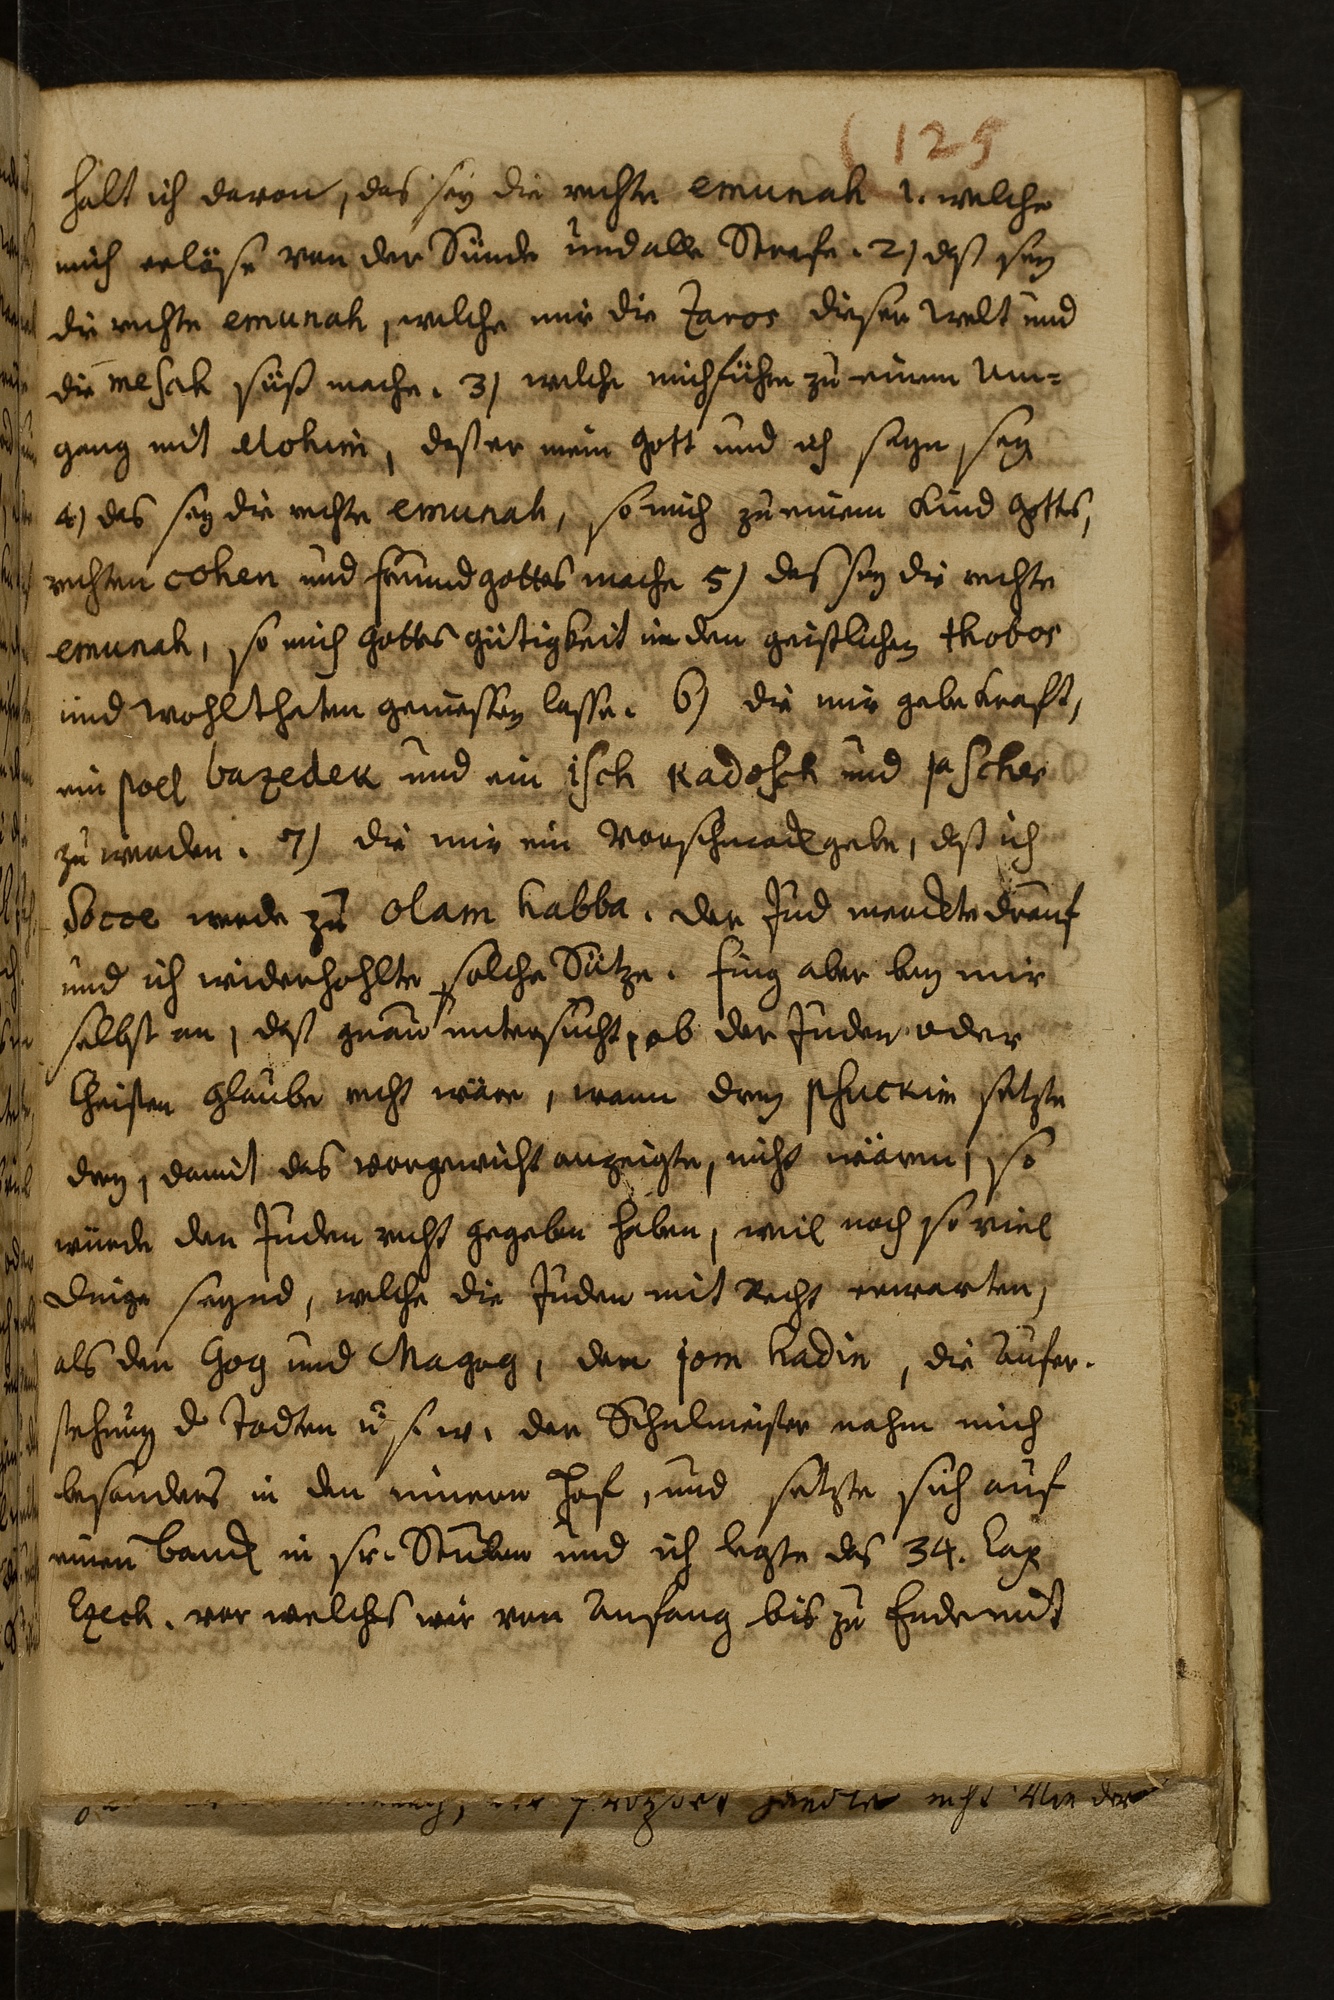 (125
halt ich davon, das sey die rechte emunah 1. welche
mich erlöse von der Sünde und alle Strafe. 2) daß sey
die rechte emunah, welche mir die Zaros dieser Welt und
die mesch süß mache. 3) welche mich führe zu einem Um=
gang mit elohim, daß er mein Gott und ich seyn sey
4) das sey die rechte emunah, so mich zu einem Kind Gottes,
rechten cohen und freund gottes mache 5) das sey die rechte
emunah, so mich Gottes gütigkeit in den geistlichen thobos
und wohlthaten geniessen lasse. 6) die mir gebe Kraft,
ein poel bazedek und ein isch kadosch und jascher
zu werden. 7) die mir ein Vorschmack gebe, daß ich
Socoe werde zu olam habba. der Jud merckte drauf
und ich widerhohlte solche Sätze. fing aber bey mir
selbst an, daß genau untersucht, ob der Juden oder
Christen Glaube recht wäre, wann drey psuckim setzte
drey, damit das vorgewicht anzeigte, nicht wären, so
würde den Juden recht gegeben haben, weil noch so viel
Dinge seynd, welche die Juden mit Recht erwarten,
als den Gog und Magog, den jom hadin, die Aufer-
stehung d Todten u s. w. der Schulmeister nahm mich
besonders in den innern Hof, und setzte sich auf
einen banck in sr. Stuben und ich legte das 34. Cap
Ezech. vor welches wir von Anfang bis zu Ende mit
handle nicht wie der